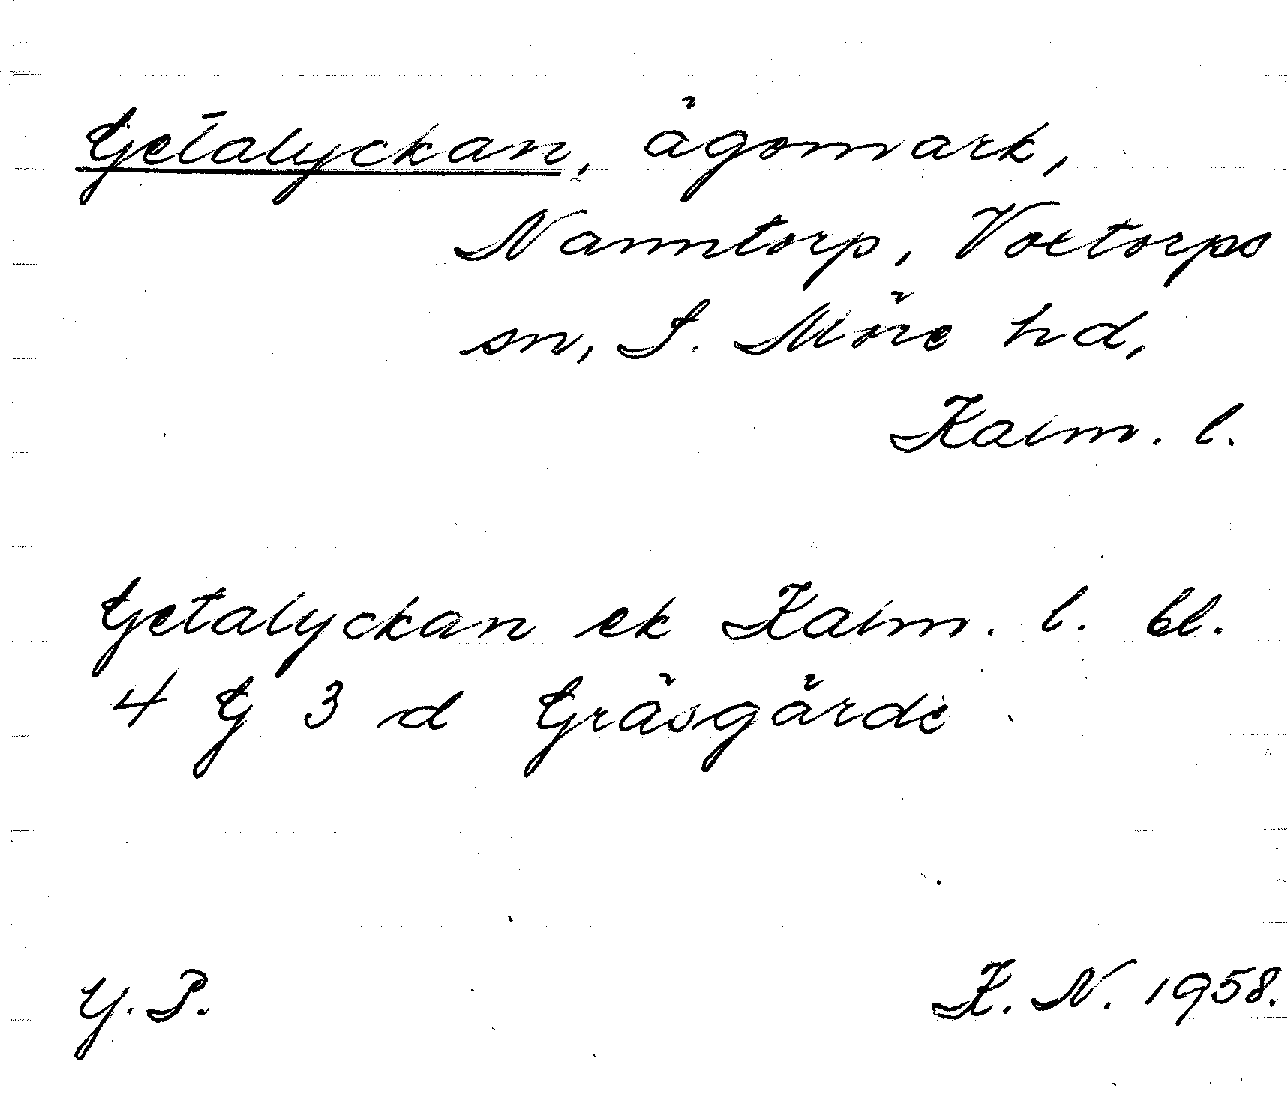 Getalyckan, ägomark,
Nanntorp, Voxtorps
sn, S. Möre hd,
Kalm. l.
Getalyckan ek Kalm. l. bl.
4 G 3 d Gräsgärde
Y. P.
K. N. 1958.